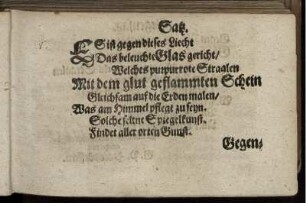 Satz.
ES ist gegen dieses Liecht
Das beleuchte Glas gericht/
Welchts purpurrote Straalen
Mit dem glut geflammten Schein
Gleichsam auf die Erden malen/
Was am Himmel pflegt zu seyn.
Solche seltne Spiegelkunst.
Findet aller orten Gunst.
Gegen-